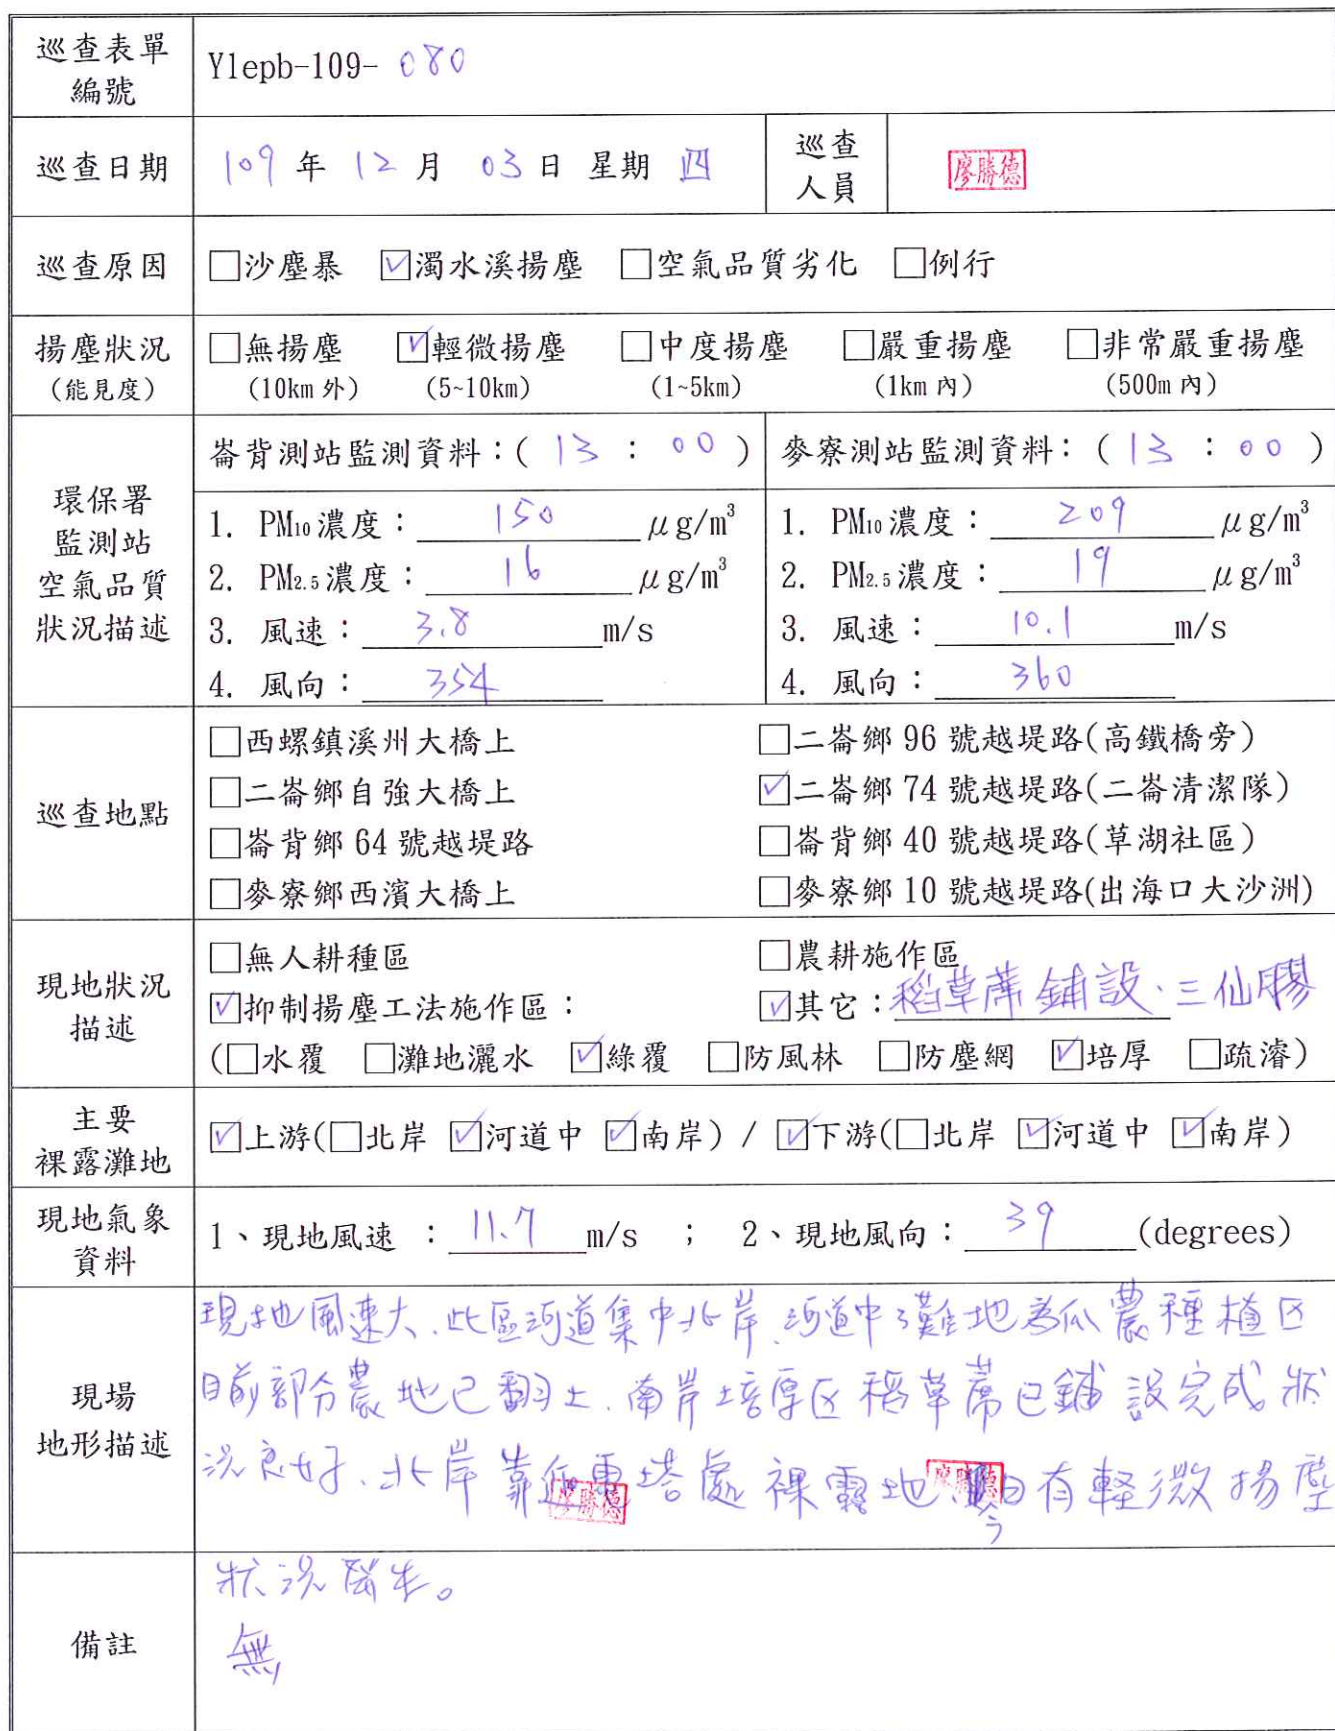 巡查表單
編號
Ylepb-109-080
巡查日期
109年12月03日 星期四
巡查
人員
廖勝德
巡查原因
□沙塵暴 ☑濁水溪揚塵 □空氣品質劣化 □例行
揚塵狀況
(能見度)
□無揚塵 ☑輕微揚塵 □中度揚塵 □嚴重揚塵 □非常嚴重揚塵
(10km 外) (5~10km) (1~5km) (1km 內) (500m 內)
環保署
監測站
空氣品質
狀況描述
崙背測站監測資料：( 13 : 00 )
1. PM10濃度：150 μg/m³
2. PM2.5濃度：16 μg/m³
3. 風速：3.8 m/s
4. 風向：354
麥寮測站監測資料：( 13 : 00 )
1. PM10濃度：209 μg/m³
2. PM2.5濃度：19 μg/m³
3. 風速：10.1 m/s
4. 風向：360
巡查地點
□西螺鎮溪州大橋上 □二崙鄉 96 號越堤路(高鐵橋旁)
□二崙鄉自強大橋上 ☑二崙鄉 74 號越堤路(二崙清潔隊)
□崙背鄉 64 號越堤路 □崙背鄉 40 號越堤路(草湖社區)
□麥寮鄉西濱大橋上 □麥寮鄉 10 號越堤路(出海口大沙洲)
現地狀況
描述
□無人耕種區 □農耕施作區
☑抑制揚塵工法施作區： ☑其它：稻草蓆鋪設、三仙膠
(□水覆 □灘地灑水 ☑綠覆 □防風林 □防塵網 ☑培厚 □疏濬)
主要
裸露灘地
☑上游(□北岸 ☑河道中 ☑南岸) / ☑下游(□北岸 ☑河道中 ☑南岸)
現地氣象
資料
1、現地風速 ：11.7 m/s ； 2、現地風向：39 (degrees)
現場
地形描述
現地風速大、此區河道集中北岸、河道中灘地為瓜農種植区
目前部分農地已翻土、南岸培厚区稻草蓆已鋪設完成狀
況良好、北岸靠 塔處裸露地 今日有軽微揚塵
廖勝德
廖勝德
狀況發生。
備註
無